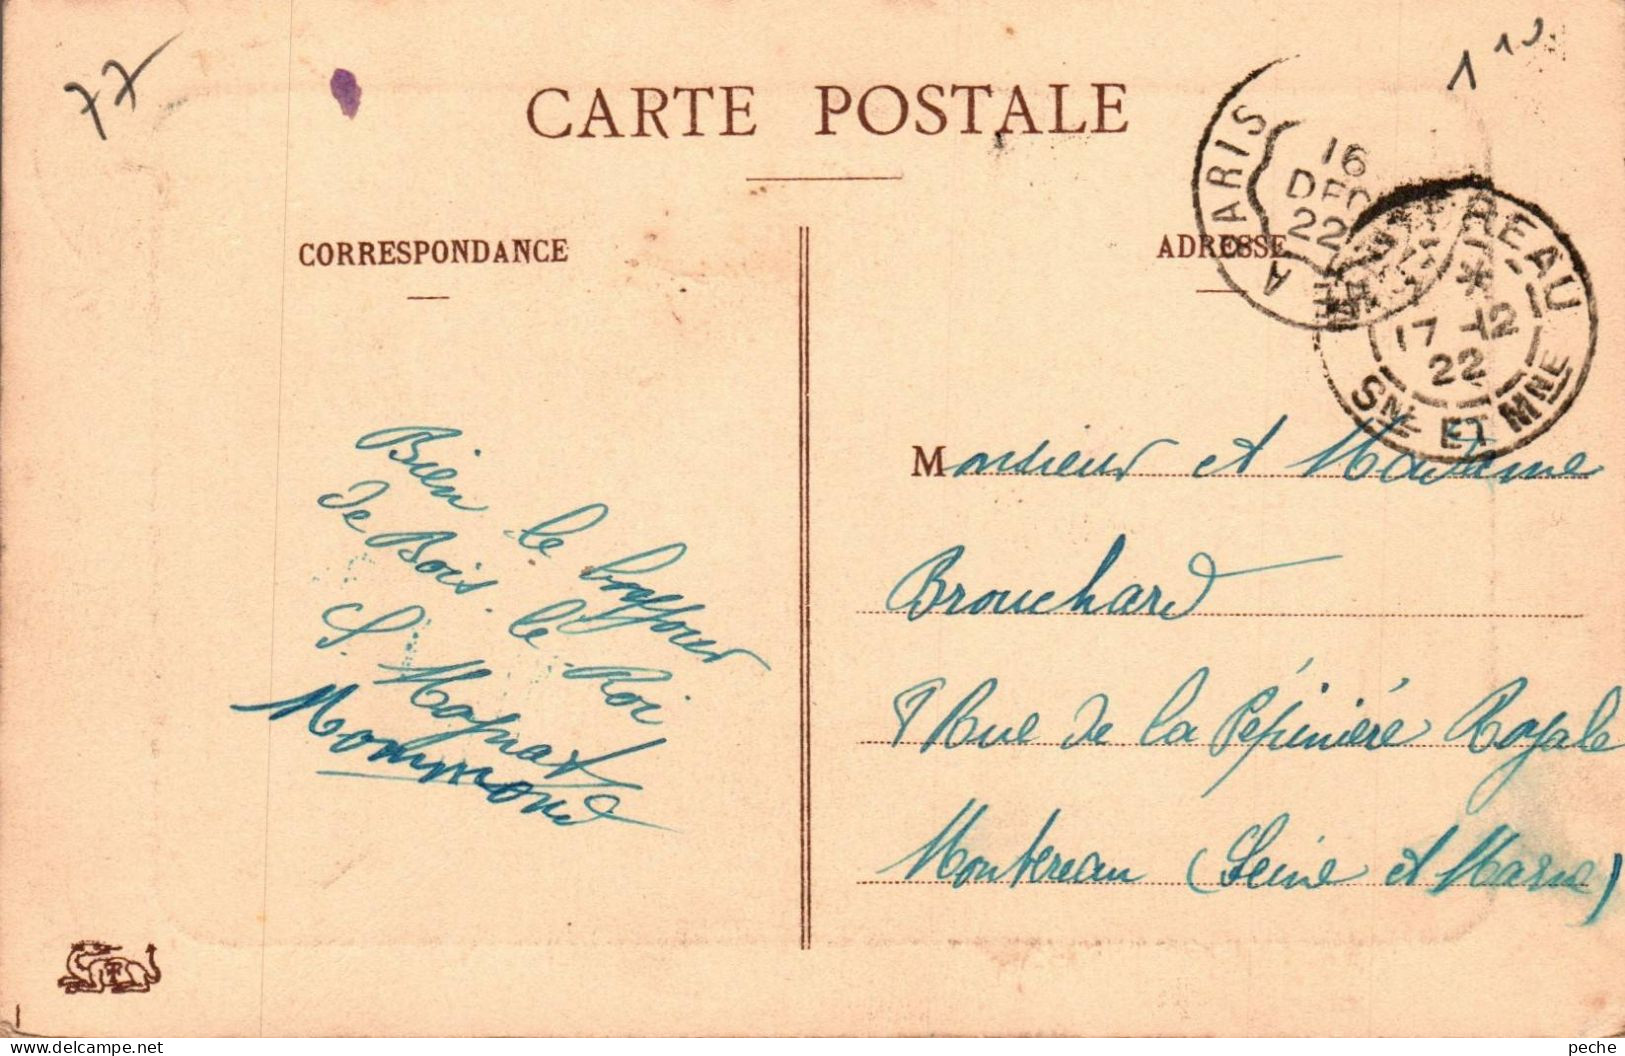 77
CARTE POSTALE
CORRESPONDANCE
Bien le bonjour
de Bois le Roi
S. Magnat
Mommond
ADRESSE
Monsieur et Madame
Brouchard
8 Rue de la Pépinière Royale
Montereau (Seine et Marne)
A PARIS
16
DEC
22
MONTEREAU
17-12
22
SNE ET MNE
www.delcampe.net
peche